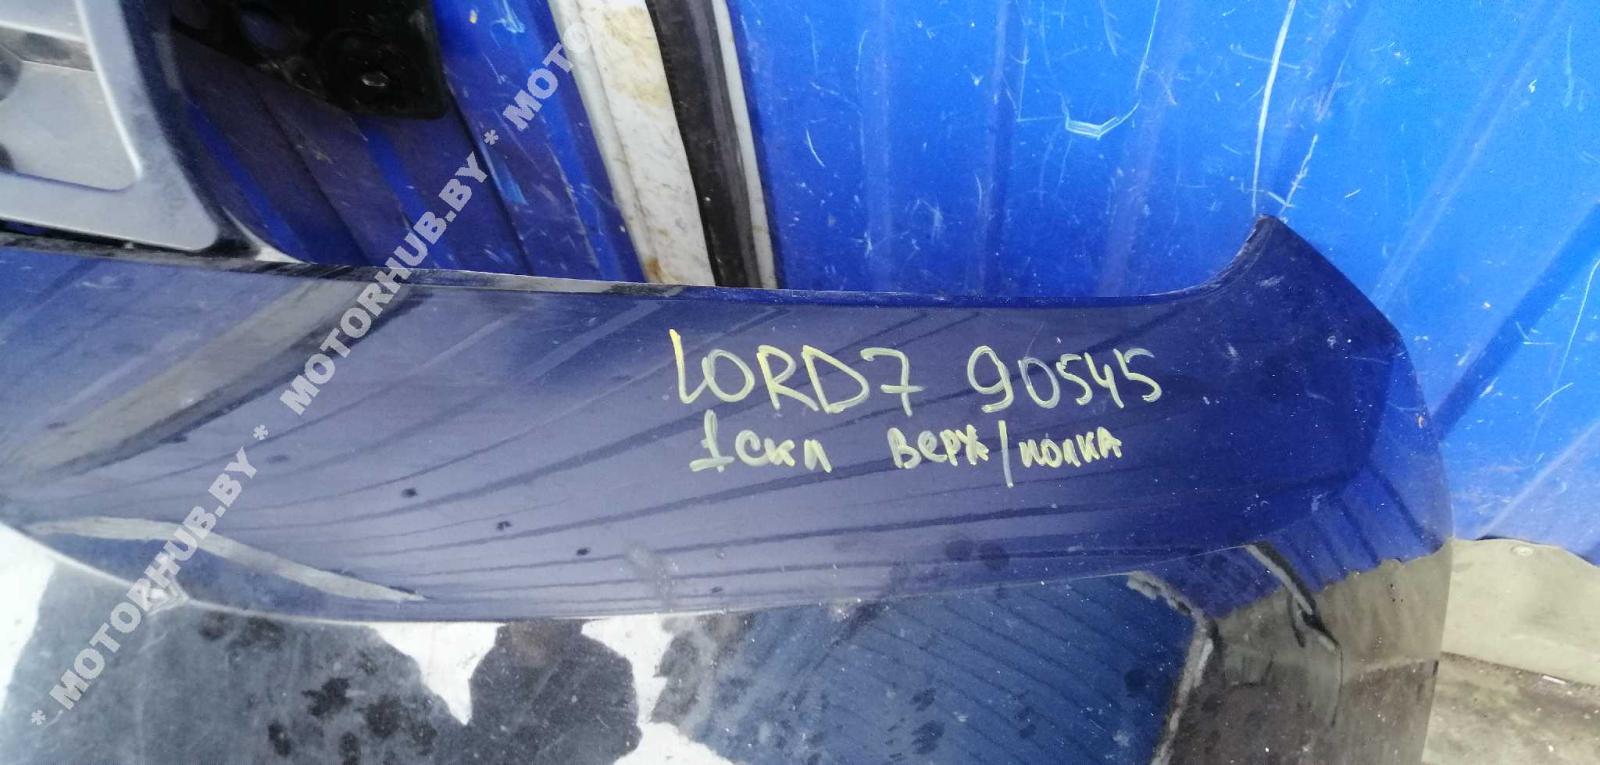 LORD7 90545
1 скл верх/полка
* MOTORHUB.BY * MOTORHUB.BY * MOTORHUB.BY * MOTO